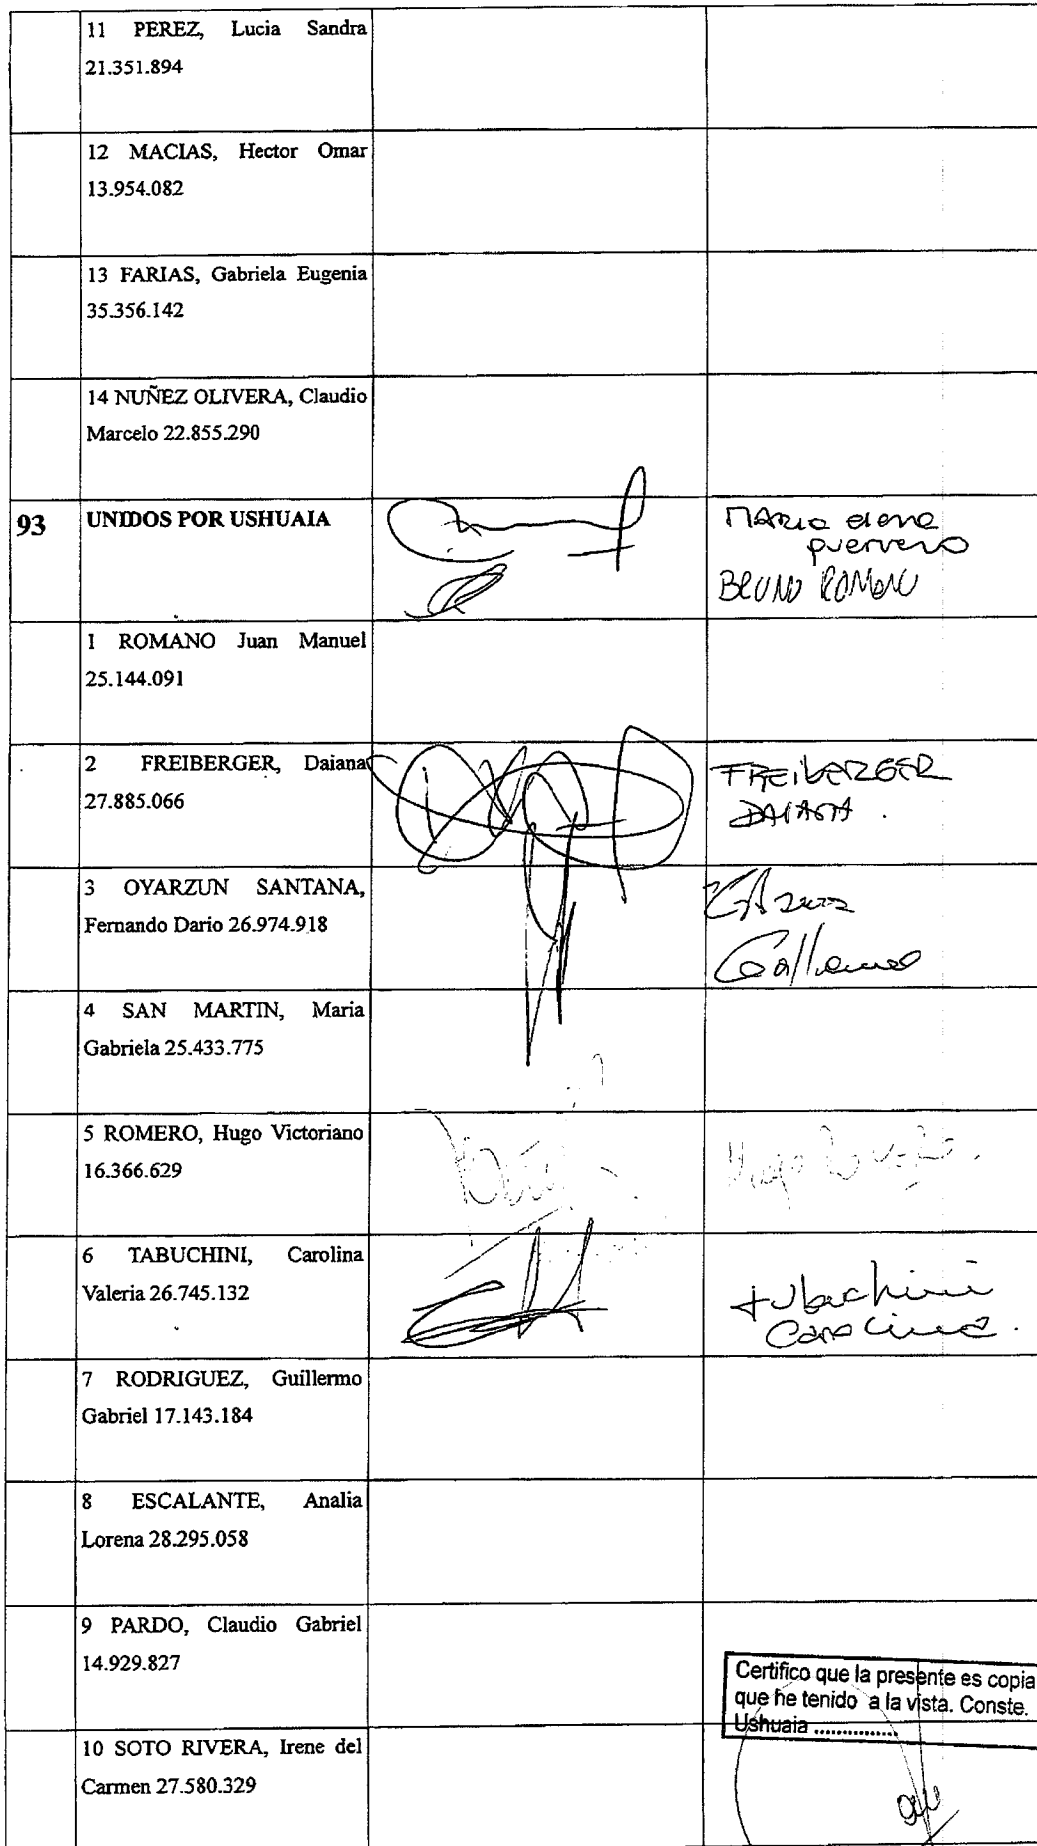 11 PEREZ, Lucia Sandra
21.351.894
12 MACIAS, Hector Omar
13.954.082
13 FARIAS, Gabriela Eugenia
35.356.142
14 NUÑEZ OLIVERA, Claudio
Marcelo 22.855.290
93 UNIDOS POR USHUAIA
MARIA elena
guerrero
BRUNO ROMANO
1 ROMANO Juan Manuel
25.144.091
2 FREIBERGER, Daiana
27.885.066
FREIBERGER
DAIANA.
3 OYARZUN SANTANA,
Fernando Dario 26.974.918
4 SAN MARTIN, Maria
Gabriela 25.433.775
5 ROMERO, Hugo Victoriano
16.366.629
Hugo
6 TABUCHINI, Carolina
Valeria 26.745.132
tubuchini
Carolina.
7 RODRIGUEZ, Guillermo
Gabriel 17.143.184
8 ESCALANTE, Analia
Lorena 28.295.058
9 PARDO, Claudio Gabriel
14.929.827
Certifico que la presente es copia
que he tenido a la vista. Conste.
Ushuaia ...............
10 SOTO RIVERA, Irene del
Carmen 27.580.329